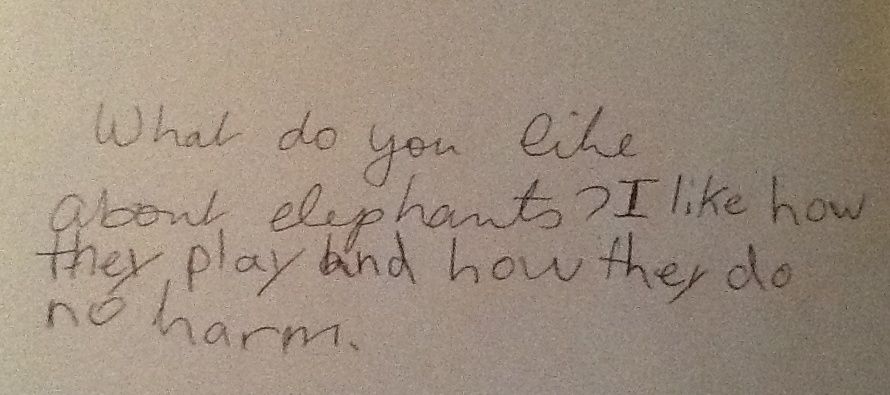 What do you like
about elephants? I like how
they play and how they do
no harm.